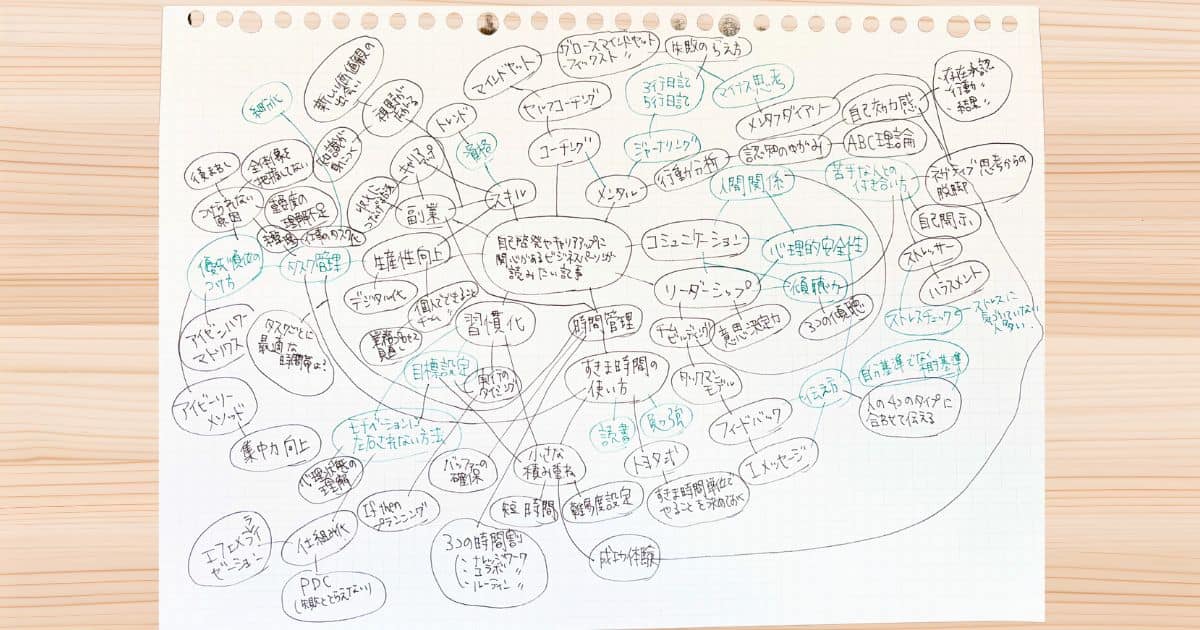 マインドセット
グロースマインドセット
フィックスト 〃
失敗のとらえ方
新しい価値観の
出会い
視野が
広がる
セルフコーチング
3行日記
5行日記
マイナス思考
存在承認
行動 〃
結果 〃
細分化
トレンド
資格
コーチング
ジャーナリング
メンタルダイアリー
自己効力感
ABC理論
認知のゆがみ
行動分析
後まわし
全体像を
把握してない
知識が
身につく
キャリアアップ
スキル
メンタル
人間関係
苦手な人との
付き合い方
ネガティブ思考からの
脱却
つけられない
原因
重要度の
理解不足
副業
自己開示
タスク管理
生産性向上
自己啓発やキャリアアップに
関心があるビジネスパーソンが
読みたい記事
コミュニケーション
心理的安全性
ストレッサー
優先順位の
つけ方
リーダーシップ
傾聴力
ハラスメント
デジタル化
個人でできること
チーム 〃
習慣化
時間管理
チームビルディング
意思決定力
3つの傾聴
ストレスチェック
ストレスに
気づいていない
人多い
アイゼンハワー
マトリクス
タスクごとに
最適な
時間帯は?
目標設定
実行の
タイミング
すきま時間の
使い方
タックマン
モデル
伝え方
アイビーリー
メソッド
人の4つのタイプに
合わせて伝える
モチベーションに
左右されない方法
読書
勉強
フィードバック
集中力向上
バッファーの
確保
小さな
積み重ね
トヨタ式
Iメッセージ
心理状態の
理解
If then
プランニング
短時間
難易度設定
すきま時間単位で
やることを決めておく
エフェメラライ
ゼーション
仕組み化
3つの時間割
ナレッジワーク
コラボ 〃
ルーティン 〃
成功体験
PDC
(失敗ととらえない)